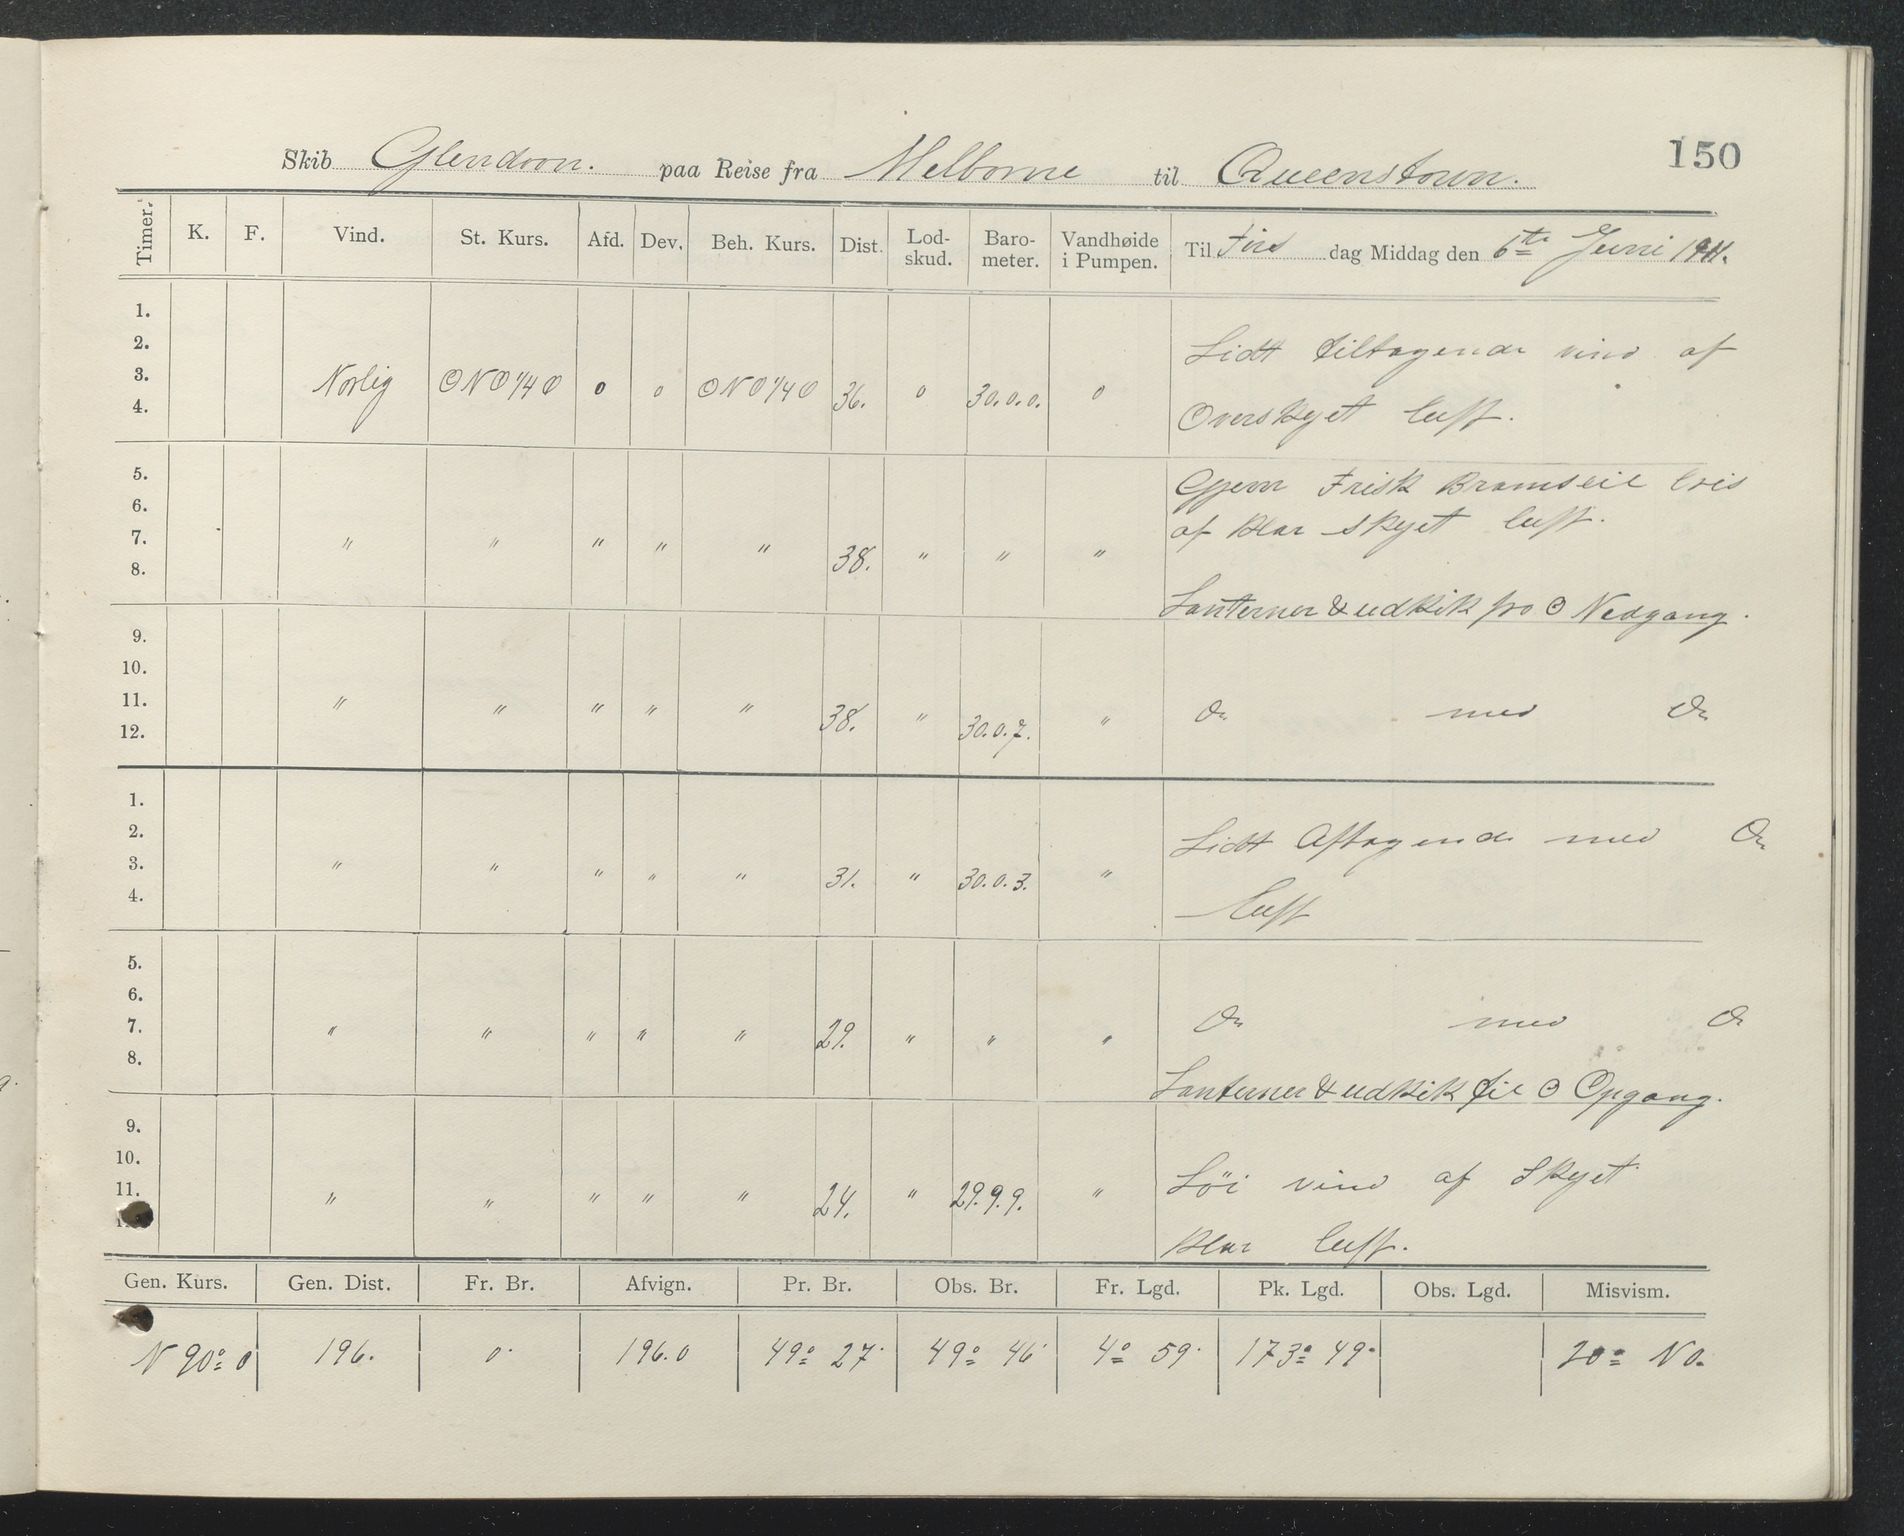 150
Skib Glendoon. paa Reise fra Melborne til Queenstown.
Timer. K. F. Vind. St. Kurs. Afd. Dev. Beh. Kurs. Dist. Lod-skud. Baro-meter. Vandhøide i Pumpen. Til Tirs dag Middag den 6te Juni 1911.
1.
2. Lidt tiltagende vind af
3. Norlig ONO 1/4 O o o ONO 1/4 O 36. o 30.0.0. o
4. Overskyet luft.
5. Gjem Frisk Bramseil bris
6. af klar skyet luft.
7. " " " " " 38. " " "
8.
Lanterner & udkik fra ☉ Nedgang.
9.
10.
11. " " " " " 38. " 30.0.7. " Do med Do
12.
1.
2. Lidt Aftagende med Do
3. " " " " " 31. " 30.0.3. "
4. luft
5.
6.
7. " " " " " 29. " " " Do med Do
8.
Lanterner & udkik til ☉ Opgang.
9.
10. Löi vind af Skyet
11. " " " " " 24. " 29.9.9. "
Klar luft.
Gen. Kurs. Gen. Dist. Fr. Br. Afvign. Pr. Br. Obs. Br. Fr. Lgd. Pk. Lgd. Obs. Lgd. Misvism.
N 90° O 196. o. 196.0 49° 27' 49° 46' 4° 59' 173° 49' 20° NO.